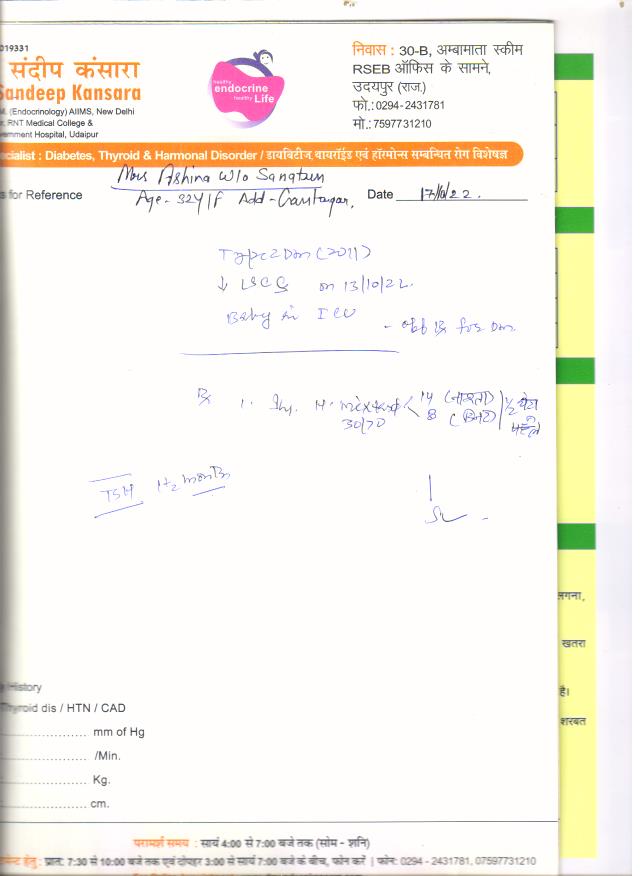 019331
संदीप कंसारा
Sandeep Kansara
M. (Endocrinology) AIIMS, New Delhi
r, RNT Medical College &
ernment Hospital, Udaipur
healthy
endocrine
healthy Life
निवास : 30-B, अम्बामाता स्कीम
RSEB ऑफिस के सामने,
उदयपुर (राज.)
फो.:0294-2431781
मो.:7597731210
ecialist : Diabetes, Thyroid & Harmonal Disorder / डायबिटीज, थायरॉईड एवं हॉरमोन्स सम्बन्धित रोग विशेषज्ञ
Mrs Ashina W/o
s for Reference Age - 32Y/F Add - Date
Type 2 Dm (2011)
↓ LSCS on 13/10/22.
Baby in ICU
- Rx for Dm.
Rx 1. Inj. H. 30/70 14 (नाश्ता) 8 (डिनर) 1/2 घंटा पहले
TSH months
लगना,
खतरा
है।
शरबत
History
Thyroid dis / HTN / CAD
mm of Hg
/Min.
Kg.
cm.
परामर्श समय : सायं 4:00 से 7:00 बजे तक (सोम - शनि)
मेन्ट हेतु : प्रात: 7:30 से 10:00 बजे तक एवं दोपहर 3:00 से सायं 7:00 बजे के बीच, फोन करें | फोन: 0294 - 2431781, 07597731210